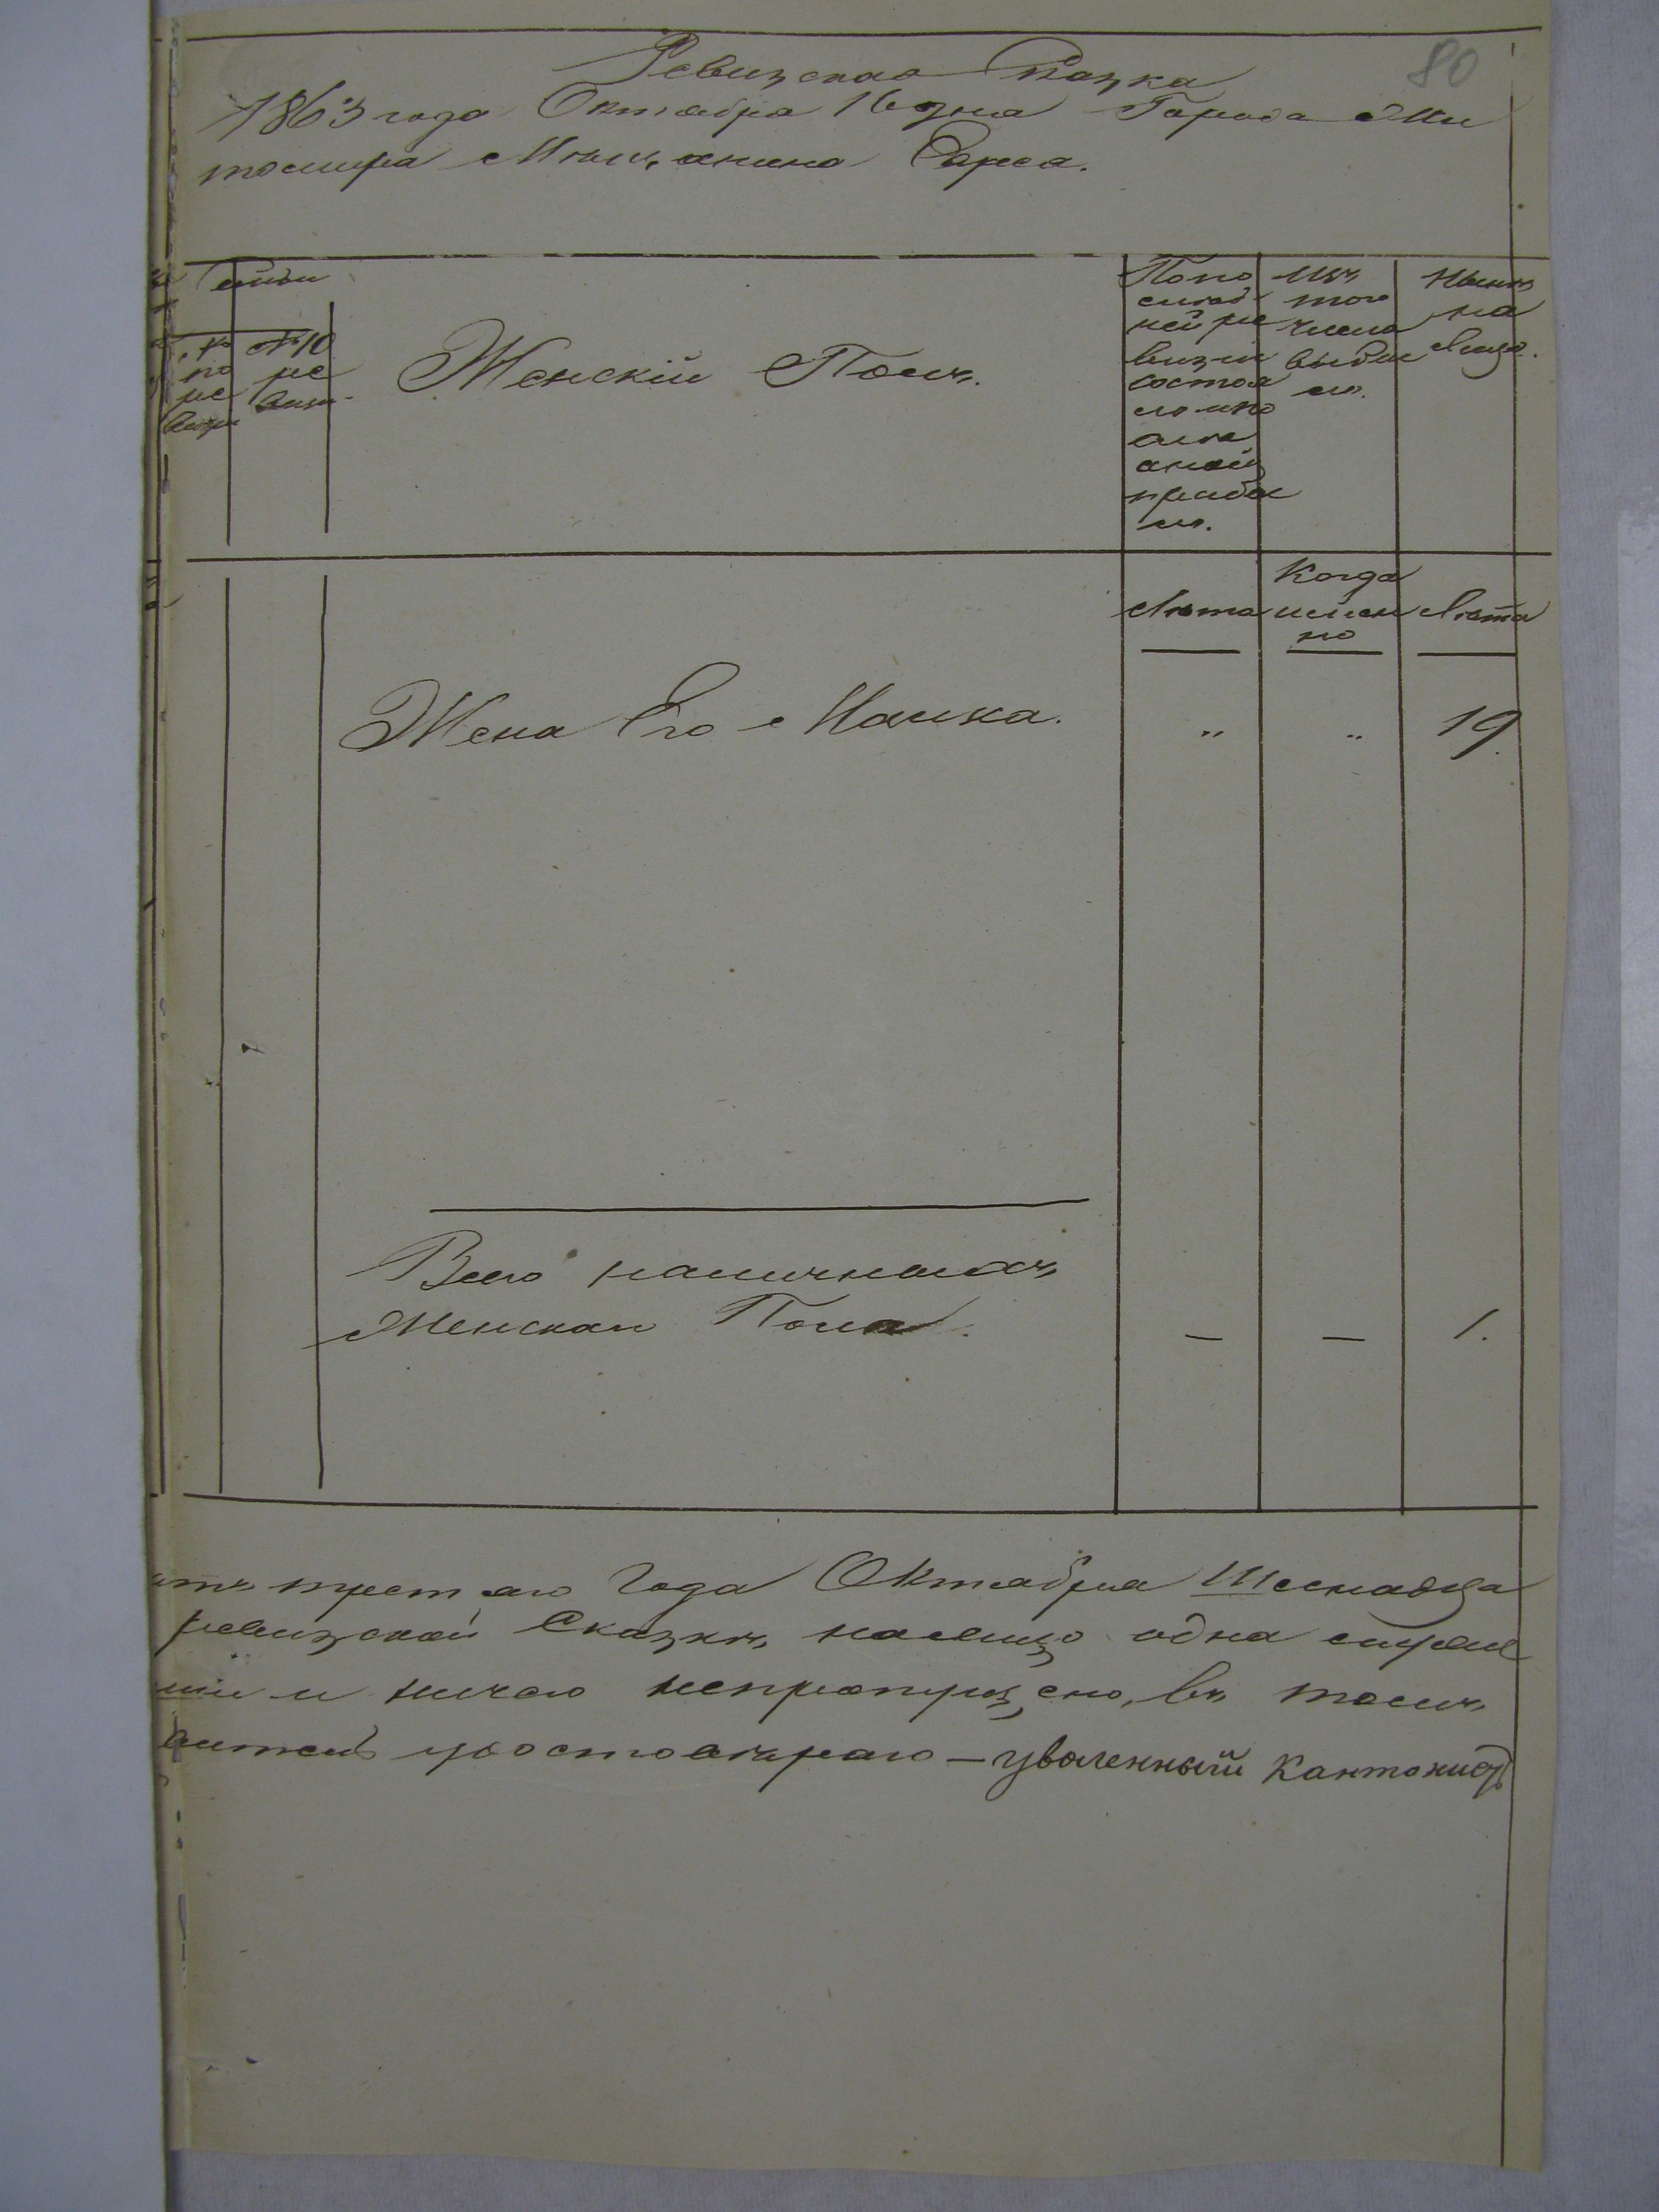 80
Ревизская Сказка
1863 года Октября 16 дня Города Жи
томира Мѣщанина
№ 10
по ре
ре визи
визи
Женскій Полъ.
По по
слѣд
ней ре
визи
состоя
ло или
после
оной
прибы
ло.
Изъ
того
числа
выбы
ло.
Нынѣ
на
лицо.
Лѣта
Когда
имен
но
Лѣта
Жена Его Малка. „ „ 19
Всего наличныхъ
Женскаго Пола. — — 1.
третяго Года Октября Шеснадца
ревизской Сказкѣ, налицо одна
и ничего непропущено, въ томъ
удостоверяю — уволенный Кантонистъ